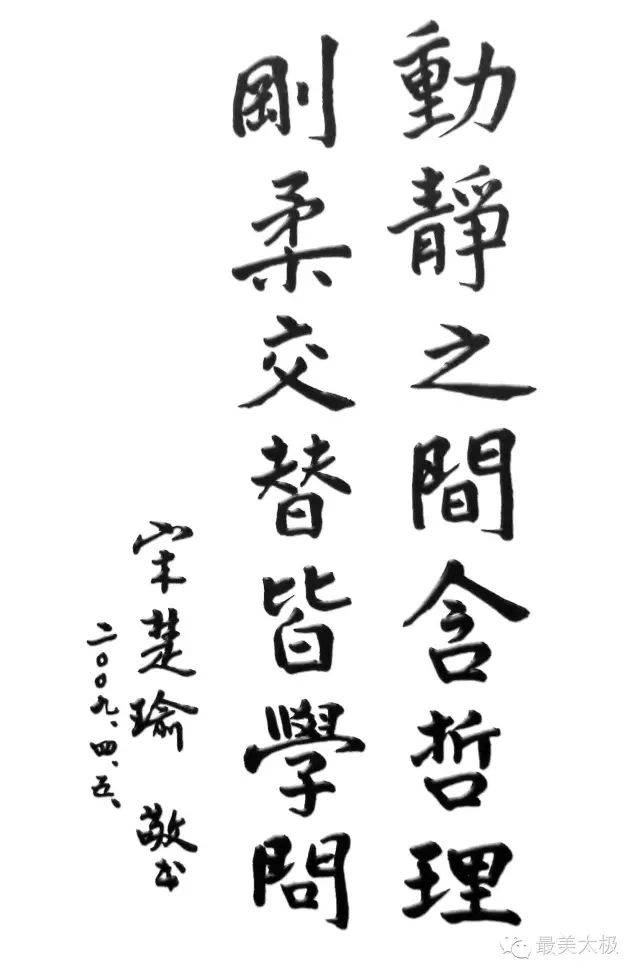 動靜之間含哲理
剛柔交替皆學問
宋楚瑜 敬书
二〇〇九、四、五、
最美太极